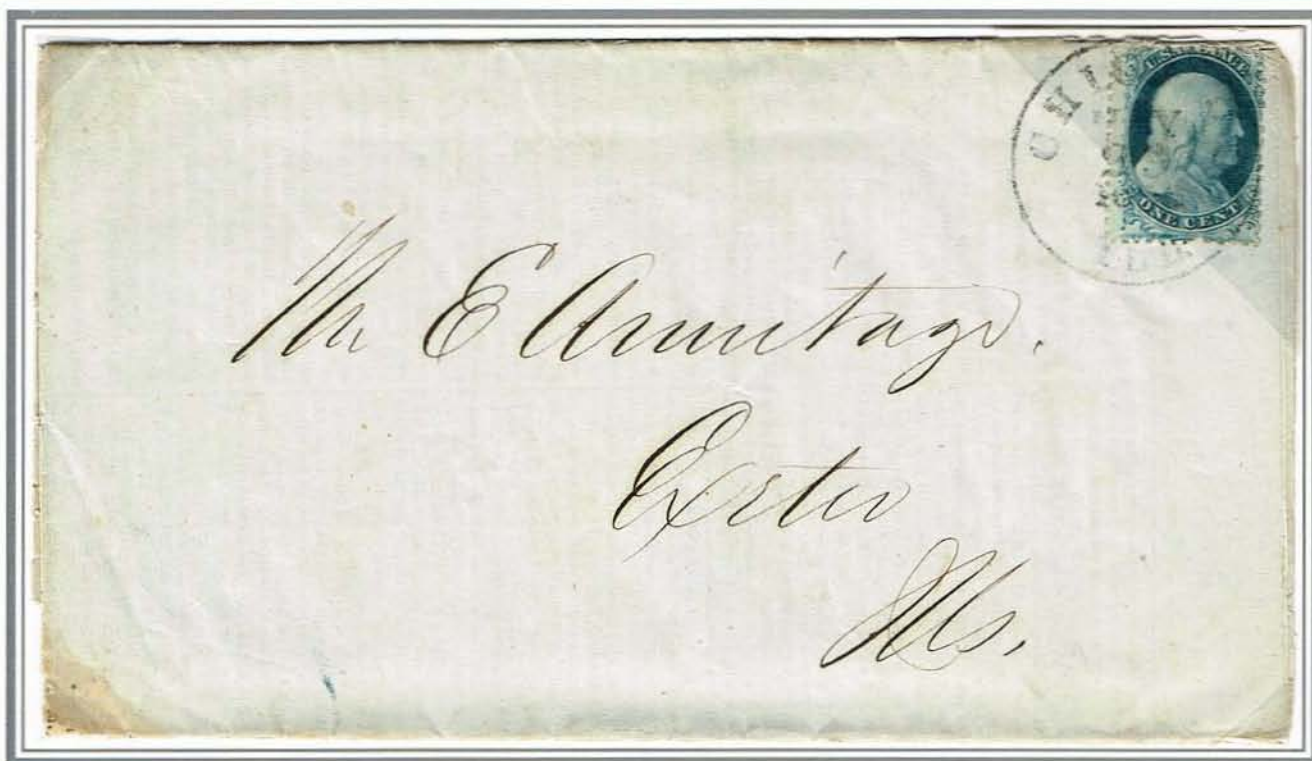 U.S. POSTAGE
ONE CENT
CHI
Mr E Armitage.
Exeter
Ills.